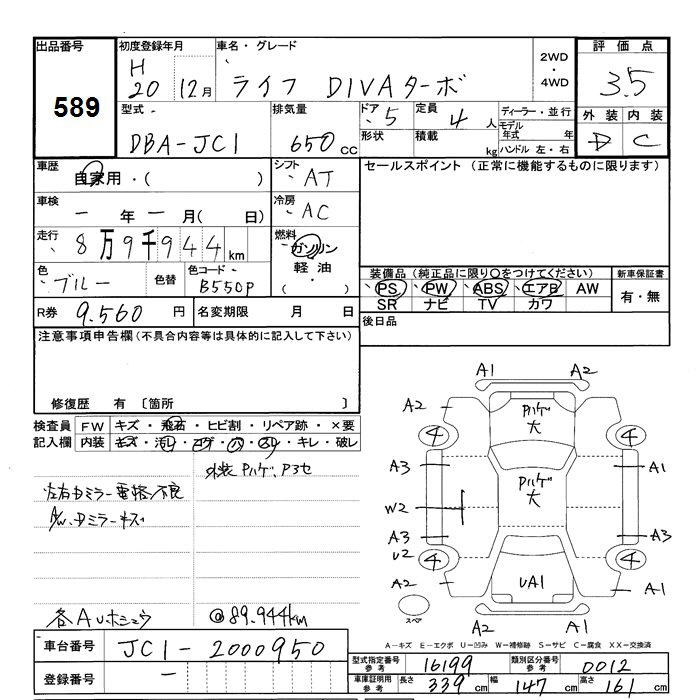 出品番号 初度登録年月 車名・グレード 2WD・4WD 評価点
589 H20 12月 ライフ DIVAターボ 3.5
型式 排気量 ドア 定員 ディーラー・並行 外装 内装
DBA-JC1 650cc 5 4人 モデル年式 年 D C
形状 積載 kg ハンドル 左・右
車歴 自家用・( ) シフト AT セールスポイント(正常に機能するものに限ります)
車検 ー年ー月( 日) 冷房 AC
走行 8万9千944km 燃料 ガソリン
軽油・( )
色 ブルー 色替 色コード B550P 装備品(純正品に限り○をつけてください) 新車保証書
PS PW ABS エアB AW 有・無
SR ナビ TV カワ
R券 9.560円 名変期限 月 日 後日品
注意事項申告欄(不具合内容等は具体的に記入して下さい)
修復歴 有 〔箇所 〕
検査員記入欄 FW キズ・飛石・ヒビ割・リペア跡・×要
内装 キズ・汚レ・コゲ・穴・スリ・キレ・破レ
外装Pハゲ、Pヨセ
左右Dミラー電格不良
A/W、Dミラーキズ
各AUホシュウ @89.944km
A1 A2
A2 Pハゲ大
4 4
A3 Pハゲ大 A1
W2
A3 A3
U2
4 4
A2 UA1 A1
スペア A2 A1
A-キズ E-エクボ U-凹み W-補修跡 S-サビ C-腐食 XX-交換済
車台番号 JC1-2000950 型式指定番号 参考 16199 類別区分番号 参考 0012
登録番号 ー 車庫証明用 参考 長さ 339cm 幅 147cm 高さ 161cm